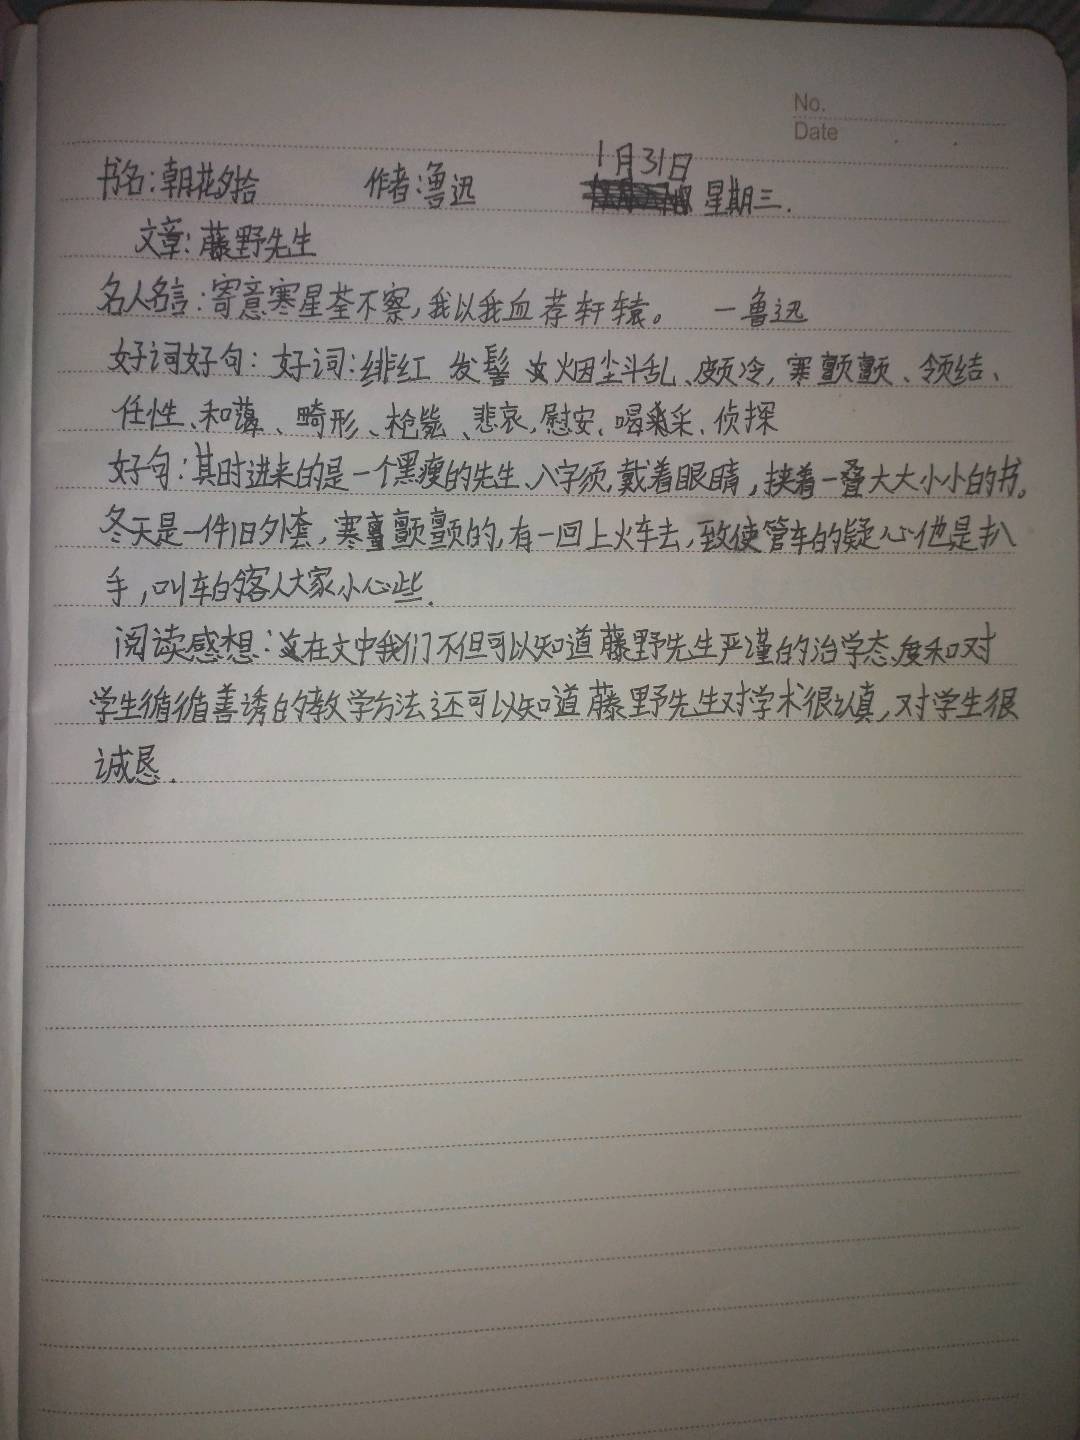 No.
Date
1月31日
书名：朝花夕拾 作者：鲁迅 星期三.
文章：藤野先生
名人名言：寄意寒星荃不察，我以我血荐轩辕。 一鲁迅
好词好句：好词：绯红 发髻 烟尘斗乱、颇冷，寒颤颤、领结、
任性、和蔼、畸形、枪毙、悲哀，慰安、喝采、侦探
好句：其时进来的是一个黑瘦的先生、八字须，戴着眼睛，挟着一叠大大小小的书。
冬天是一件旧外套，寒颤颤的，有一回上火车去，致使管车的疑心他是扒
手，叫车的客人大家小心些.
阅读感想：在文中我们不但可以知道藤野先生严谨的治学态度和对
学生循循善诱的教学方法还可以知道藤野先生对学术很认真，对学生很
诚恳.